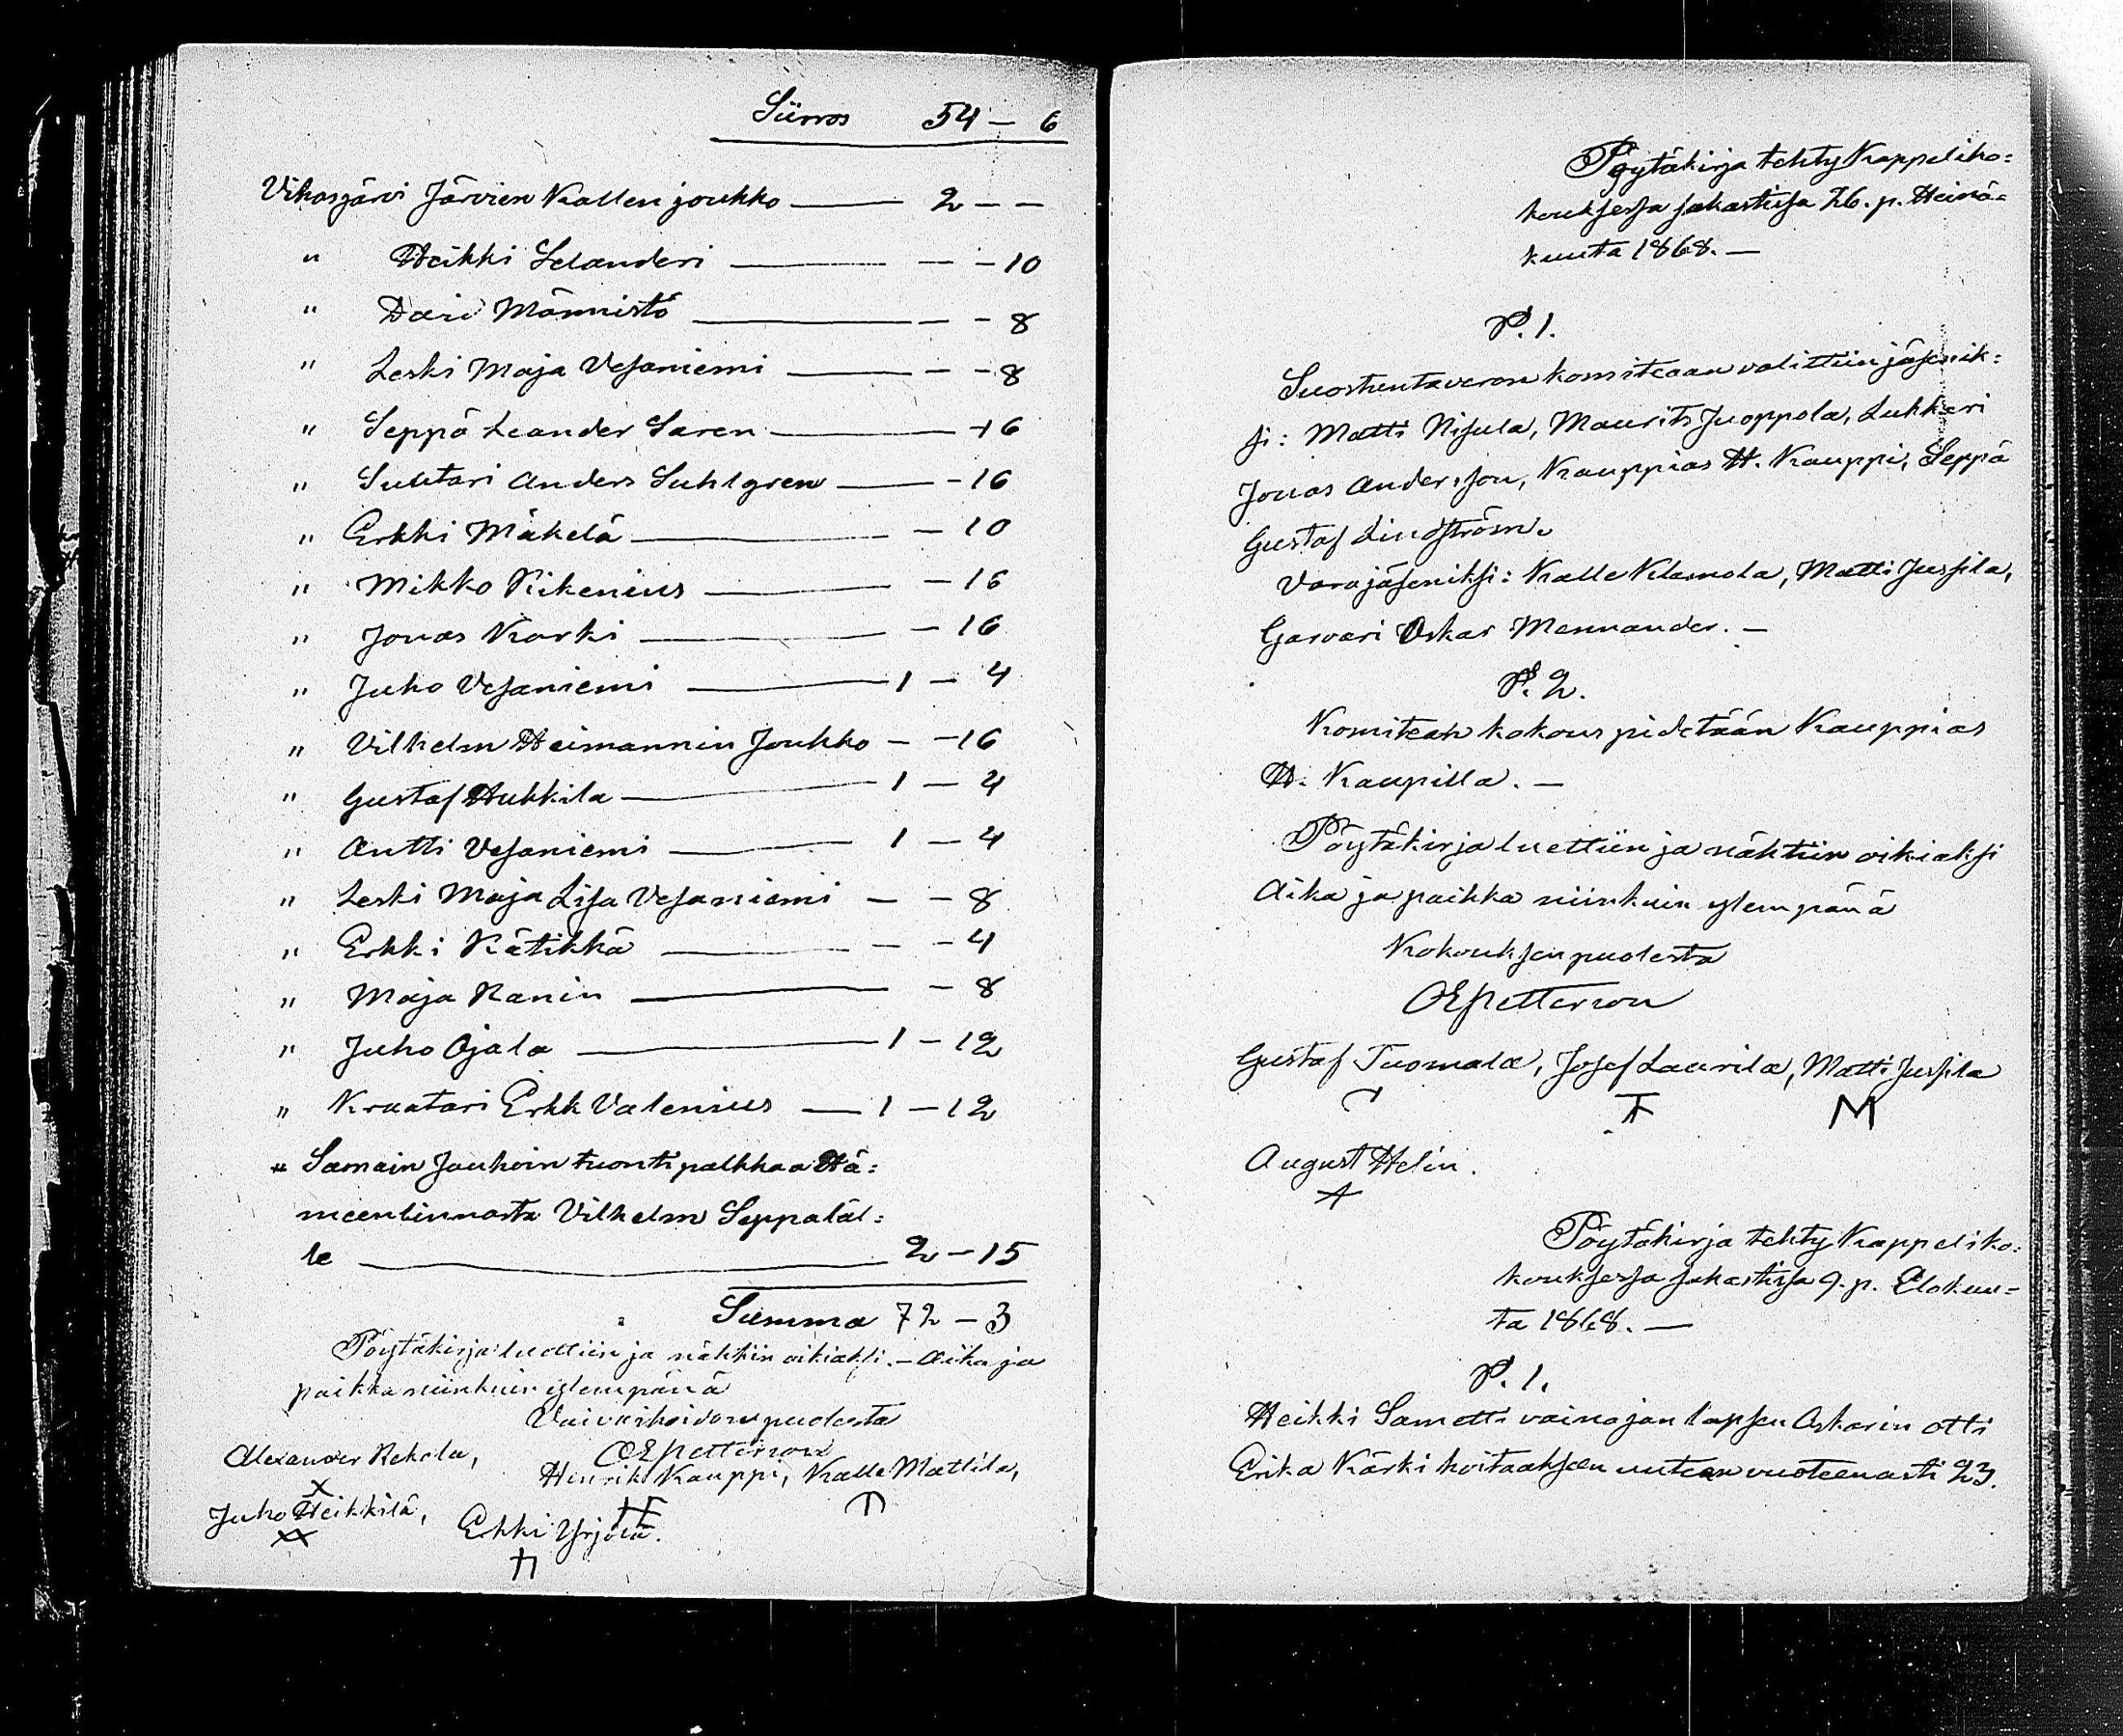 Siirros 54 – 6
Vihasjärvi Järvien Kallen joukko — 2 – –
" Heikki Selanderi — – – 10
" Davi Männistö — – – 8
" Leski Maja Vesaniemi — – – 8
" Seppä Leander Saren — – 16
" Suutari Anders Suhlgren — – 16
" Erkki Mäkelä — – 10
" Mikko Rikenius — – 16
" Jonas Karki — – 16
" Juho Vesaniemi — 1 – 4
" Vilhelm Heimannin Joukko – – 16
" Gustaf Hukkila — 1 – 4
" Antti Vesaniemi — 1 – 4
" Leski Maja Lisa Vesaniemi – – 8
" Erkki Rätikkä — – – 4
" Maja Ranin — – 8
" Juho Ojala — 1 – 12
" Kraatari Erkk Valenius — 1 – 12
" Samain Jauhoin tuonti palkkaa Hä=
meenlinnasta Vilhelm Seppäläl=
le — 2 – 15
Summa 72 – 3
Pöytäkirja luettiin ja nähtiin oikiaksi. – Aika ja
paikka niinkuin ylempänä
Vaivaishoidon puolesta
OEPetterson
Alexander Rekola, Henrik Kauppi, Kalle Mattila,
Juho Heikkilä, Erkki Yrjölä.
Pöytäkirja tehty Kappeliko=
kouksessa sakastissa 26. p. Heinä=
kuuta 1868. —
P. 1.
Suostuntaveron komiteaan valittiin jäsenik=
si: Matti Nisula, Maurits Juoppola, Lukkari
Jonas Andersson, Kauppias H. Kauppi, Seppä
Gustaf Lindström.
Varajäseniksi: Kalle Klemola, Matti Jussila,
Garvari Oskar Mennander. —
P. 2.
Komitean kokous pidetään Kauppias
H. Kaupilla. —
Pöytäkirja luettiin ja nähtiin oikiaksi
Aika ja paikka niinkuin ylempänä
Kokouksen puolesta
OEPetterson
Gustaf Tuomala, Josef Laurila, Matti Jussila
M
August Helin.
A
Pöytäkirja tehty Kappeliko=
kouksessa sakastissa 9. p. Elokuu=
ta 1868. —
P. 1.
Heikki Sametti vainajan lapsen Oskarin otti
Erika Kärki hoitaakseen uuteen vuoteen asti 23.